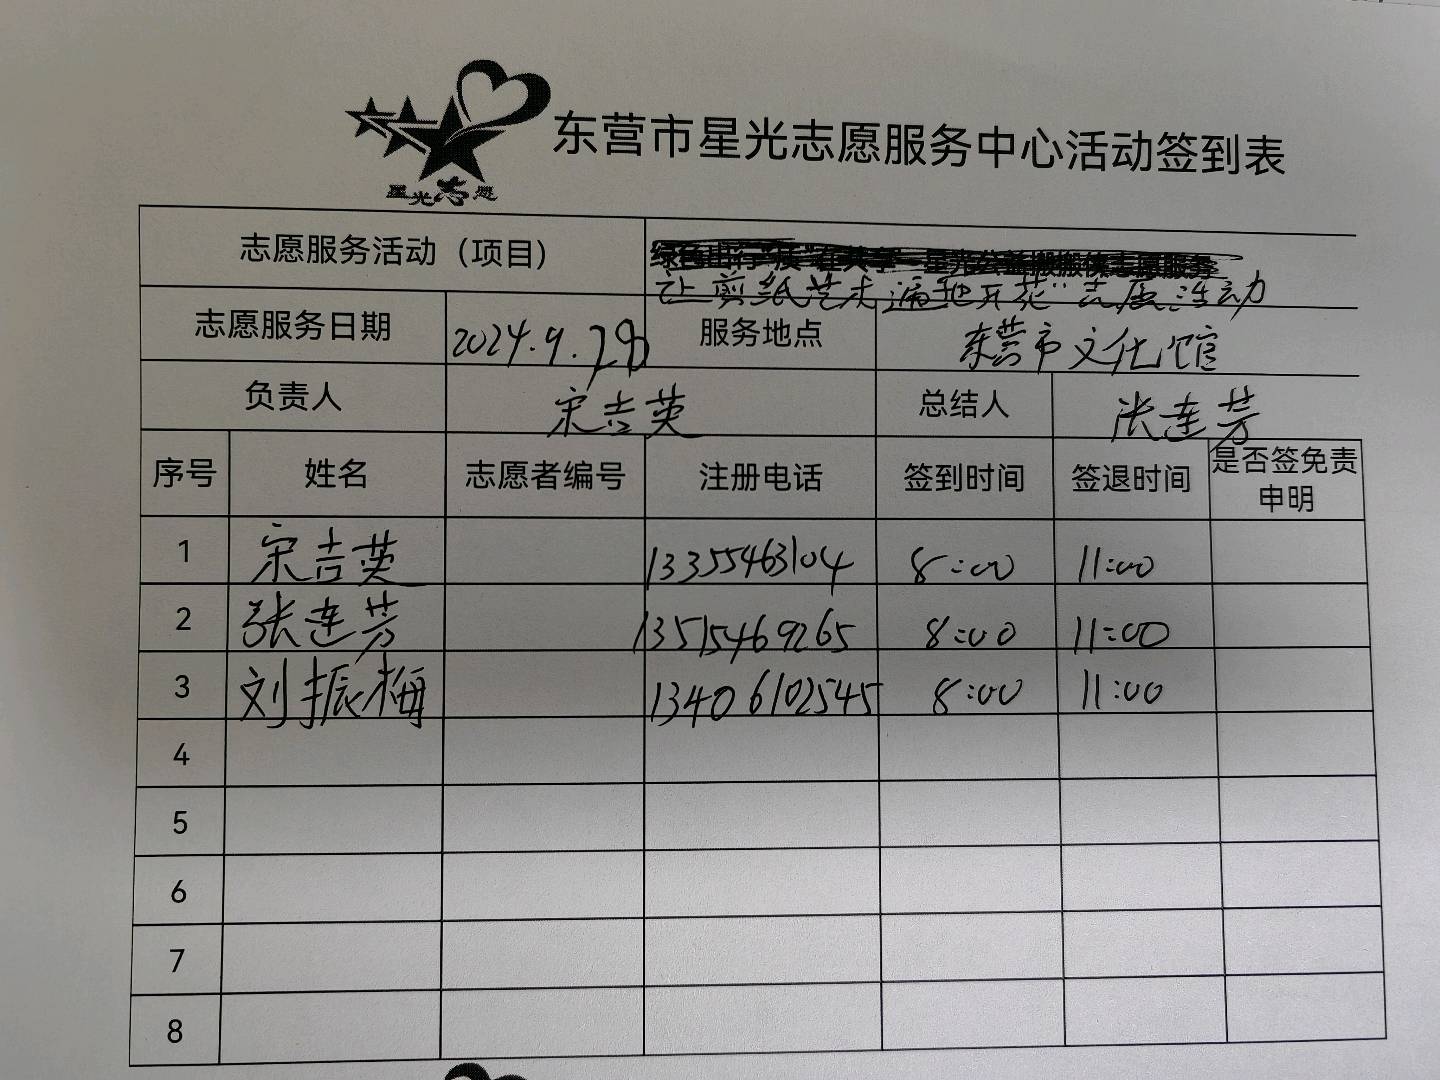 星光志愿
东营市星光志愿服务中心活动签到表
志愿服务活动（项目）
让剪纸艺术遍地开花"志愿活动
志愿服务日期 2024.9.29 服务地点 东营市文化馆
负责人 宋吉英 总结人 张连芳
序号 姓名 志愿者编号 注册电话 签到时间 签退时间 是否签免责申明
1 宋吉英 13355463104 8:00 11:00
2 张连芳 13515469265 8:00 11:00
3 刘振梅 13406102545 8:00 11:00
4
5
6
7
8